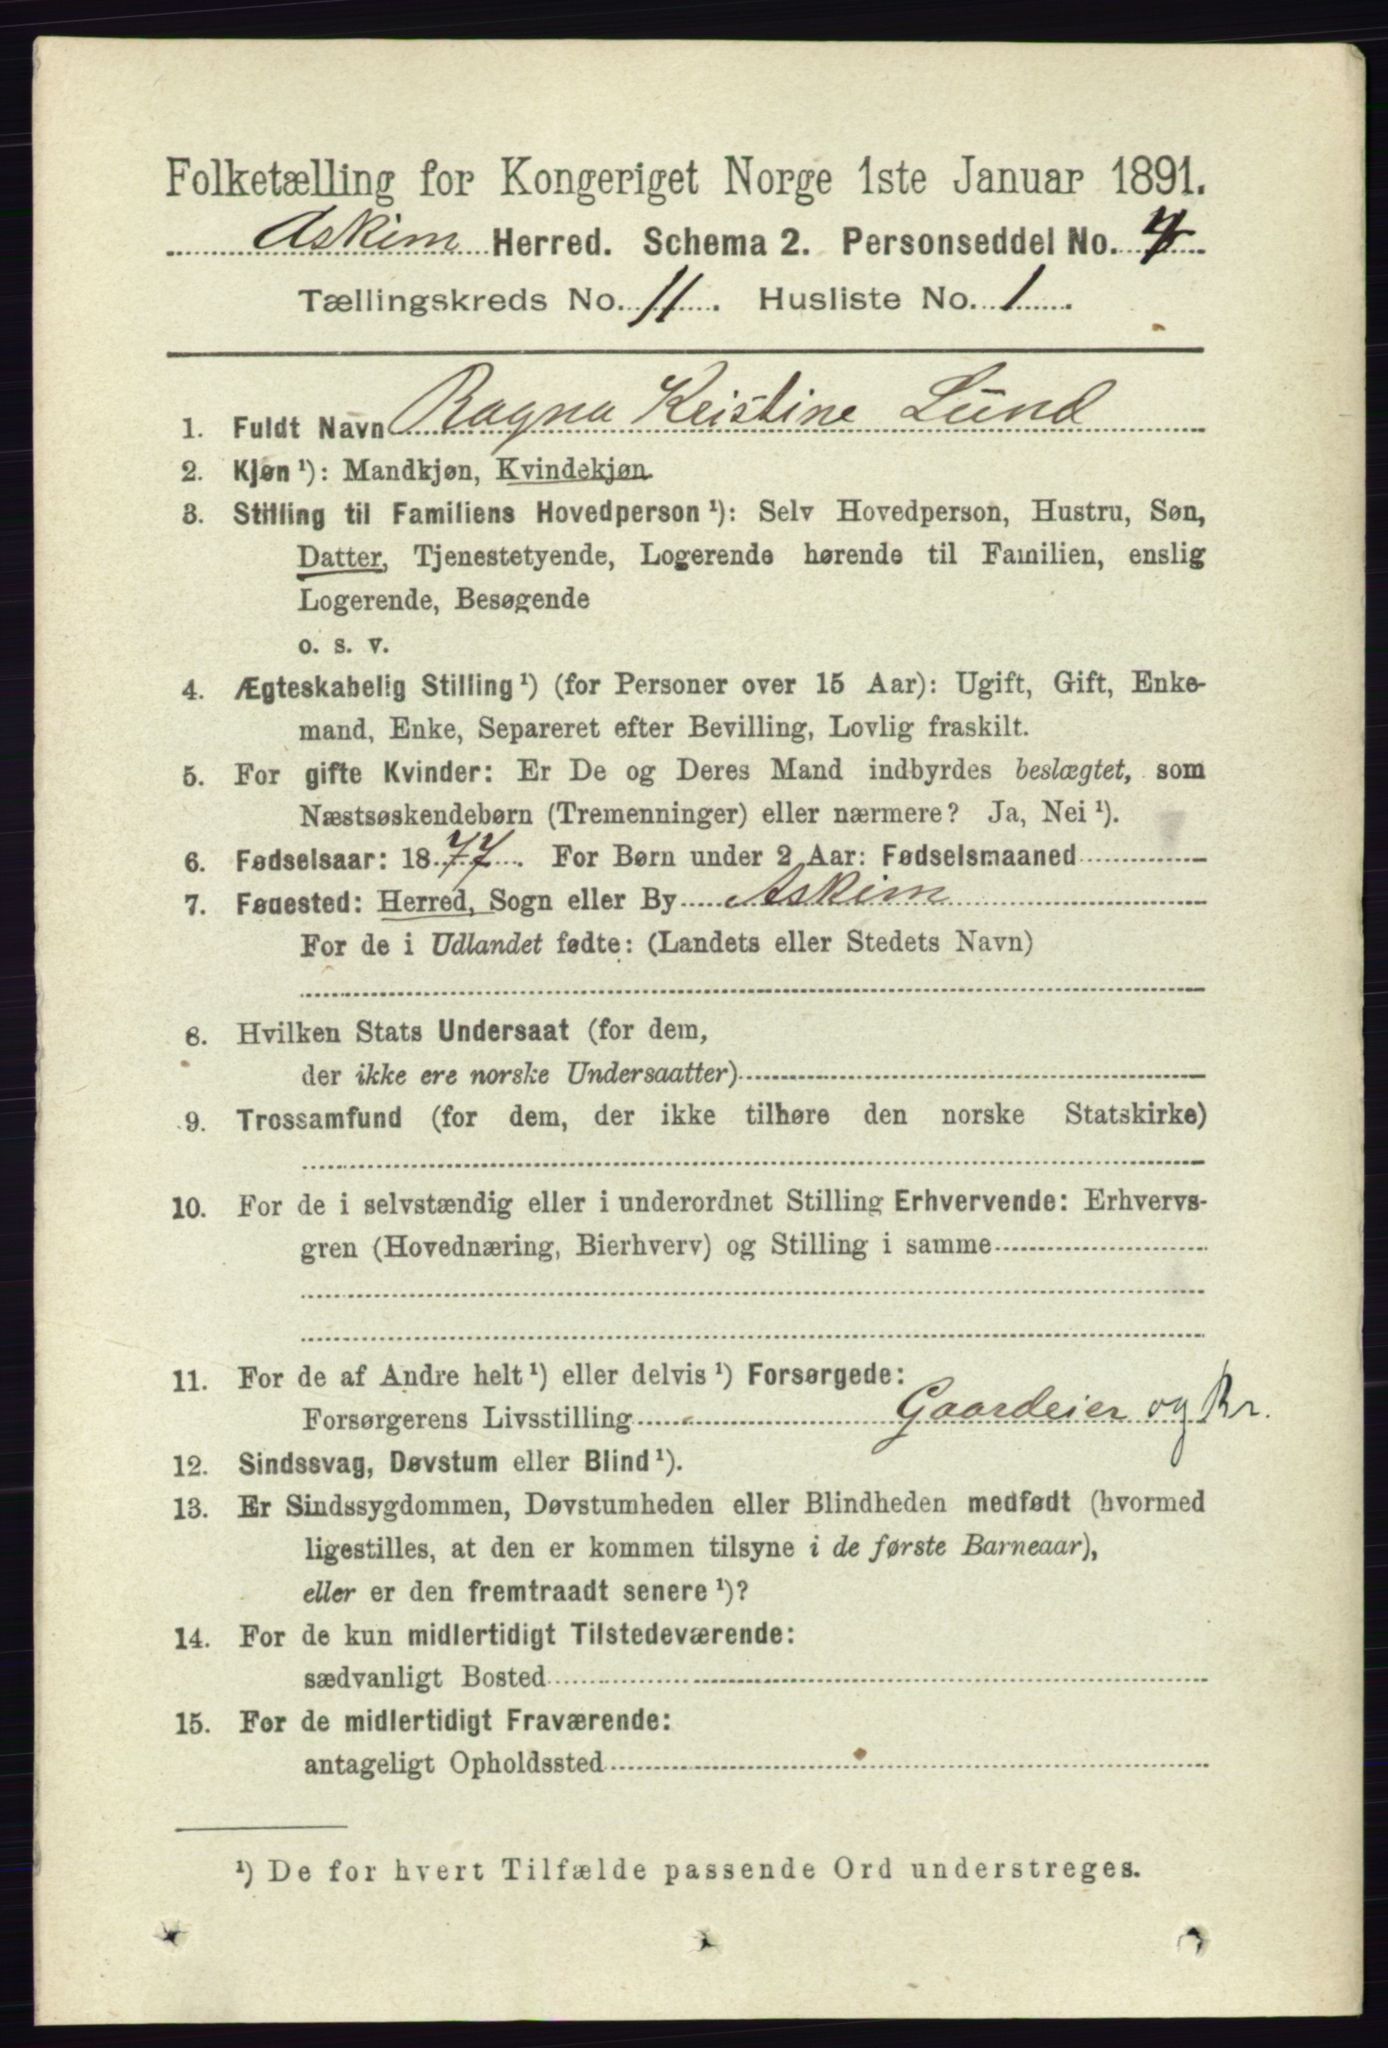 Folketælling for Kongeriget Norge 1ste Januar 1891.
Askim Herred. Schema 2. Personseddel No.
Tællingskreds No. 11. Husliste No. 1.
1. Fuldt Navn Ragna Kristine Lund
2. Kjøn ¹): Mandkjøn, Kvindekjøn
3. Stilling til Familiens Hovedperson ¹): Selv Hovedperson, Hustru, Søn,
Datter, Tjenestetyende, Logerende hørende til Familien, enslig
Logerende, Besøgende
o. s. v.
4. Ægteskabelig Stilling ¹) (for Personer over 15 Aar): Ugift, Gift, Enke-
mand, Enke, Separeret efter Bevilling, Lovlig fraskilt.
5. For gifte Kvinder: Er De og Deres Mand indbyrdes beslægtet, som
Næstsøskendebørn (Tremenninger) eller nærmere? Ja, Nei ¹).
6. Fødselsaar: 1877. For Børn under 2 Aar: Fødselsmaaned
7. Fødested: Herred, Sogn eller By Askim
For de i Udlandet fødte: (Landets eller Stedets Navn)
8. Hvilken Stats Undersaat (for dem,
der ikke ere norske Undersaatter)
9. Trossamfund (for dem, der ikke tilhøre den norske Statskirke)
10. For de i selvstændig eller i underordnet Stilling Erhvervende: Erhvervs-
gren (Hovednæring, Bierhverv) og Stilling i samme
11. For de af Andre helt ¹) eller delvis ¹) Forsørgede:
Forsørgerens Livsstilling Gaardeier og Br.
12. Sindssvag, Døvstum eller Blind ¹).
13. Er Sindssygdommen, Døvstumheden eller Blindheden medfødt (hvormed
ligestilles, at den er kommen tilsyne i de første Barneaar),
eller er den fremtraadt senere ¹)?
14. For de kun midlertidigt Tilstedeværende:
sædvanligt Bosted
15. For de midlertidigt Fraværende:
antageligt Opholdssted
¹) De for hvert Tilfælde passende Ord understreges.